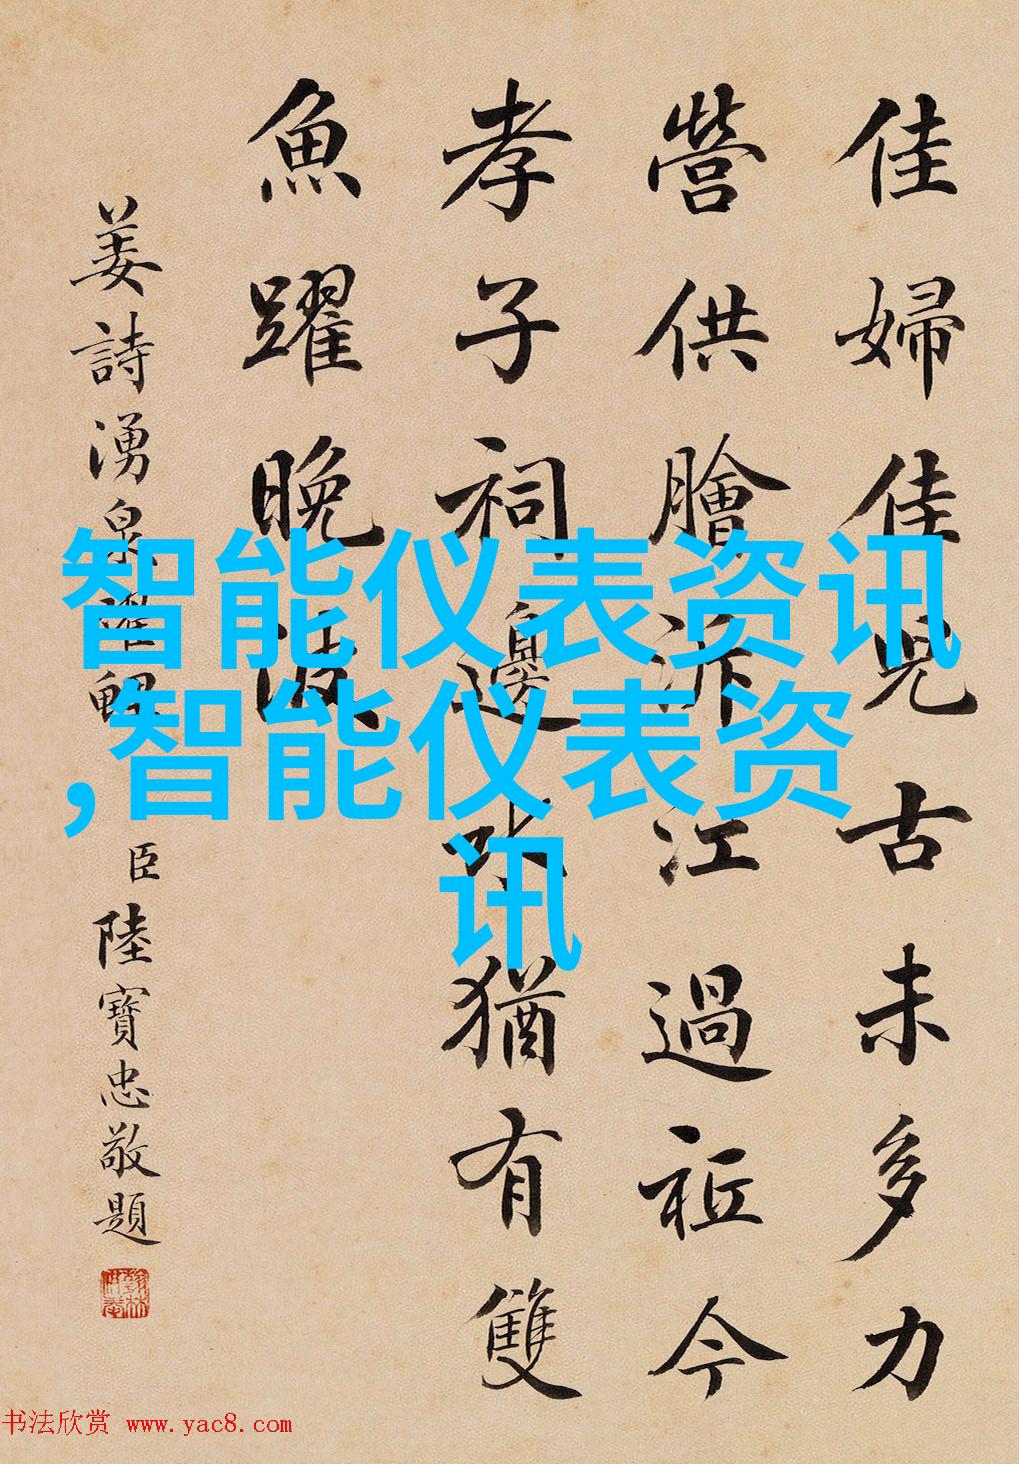 佳婦佳兒古未多力
營供膾泝江過祗今
孝子祠邊水猶有雙
魚躍晚波
姜詩湧泉躍鯉
臣陸寶忠敬題
智能仪表资讯
,智能仪表资
讯
书法欣赏 www.yac8.com